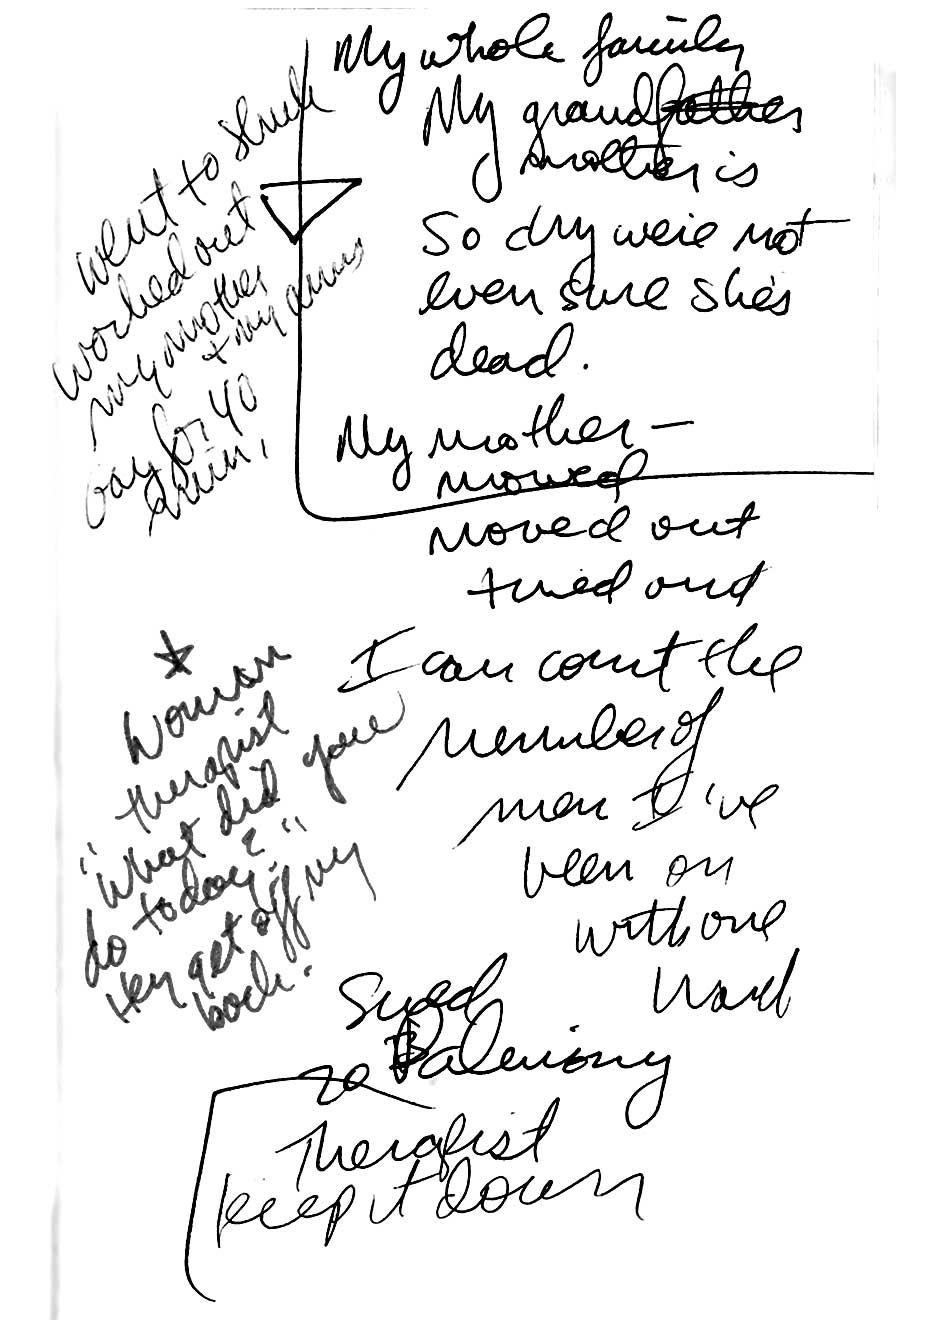 My whole family
My grandfather
mother is
So dry we're not
even sure she's
dead.
My mother —
moved
moved out
turned out
I can count the
number of
men I've
been on
with one
hand
Sued
Palimony
Therapist
keep it down
went to
worked out
my mother
+ my
pay for 40
min.
Woman
therapist
"what did you
do today?"
Hey get off my
back.